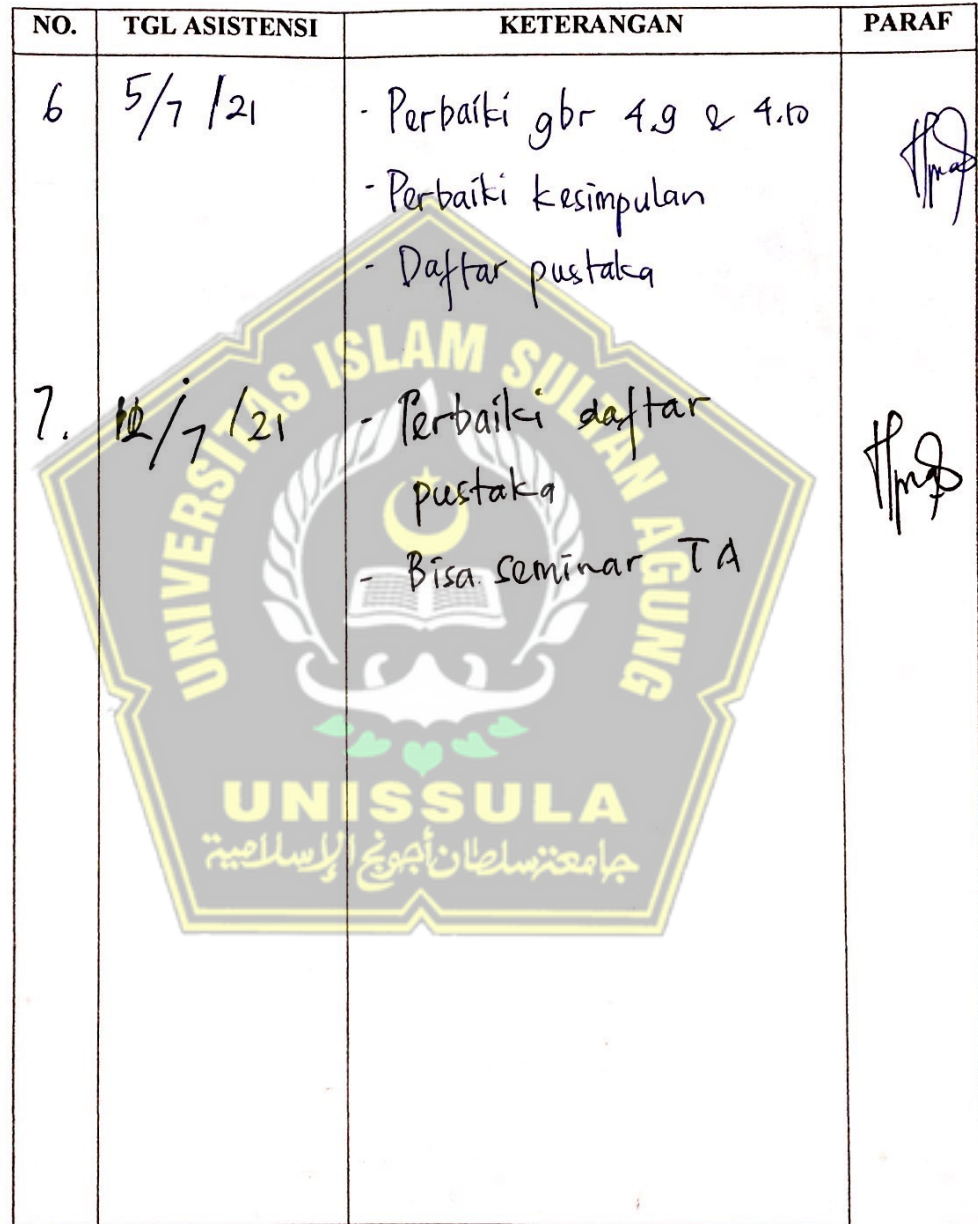 NO. TGL ASISTENSI KETERANGAN PARAF
6 5/7/21 - Perbaiki gbr 4.9 & 4.10
- Perbaiki kesimpulan
- Daftar pustaka
7. /7/21 - Perbaiki daftar
pustaka
- Bisa seminar TA
UNIVERSITAS ISLAM SULTAN AGUNG
UNISSULA
جامعة سلطان أجونج الإسلامية